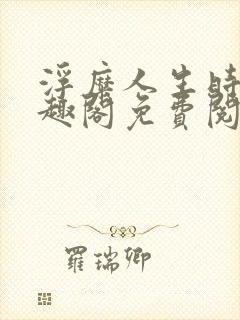 浮靡人生時
趣閣免費閱
羅瑞卿